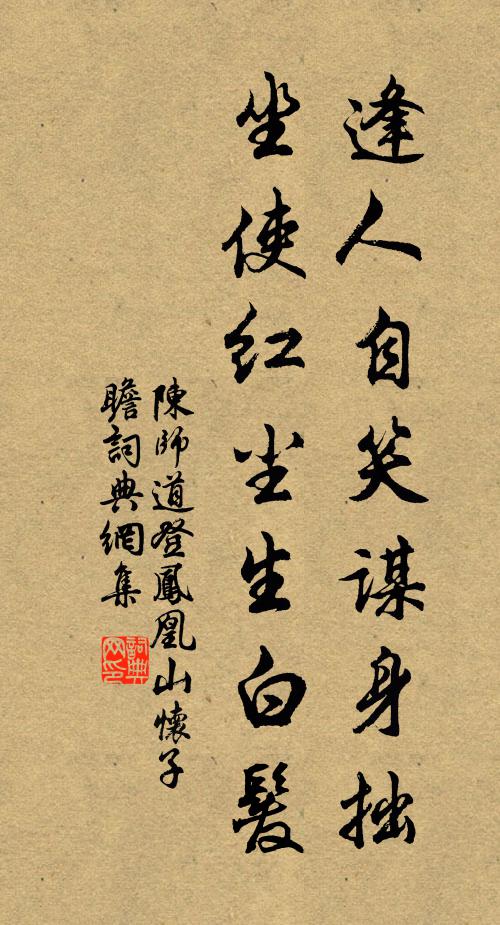 逢人自笑谋身拙
坐使红尘生白髮
陳師道登鳳凰山懷子
瞻詞典網集
詞典网印